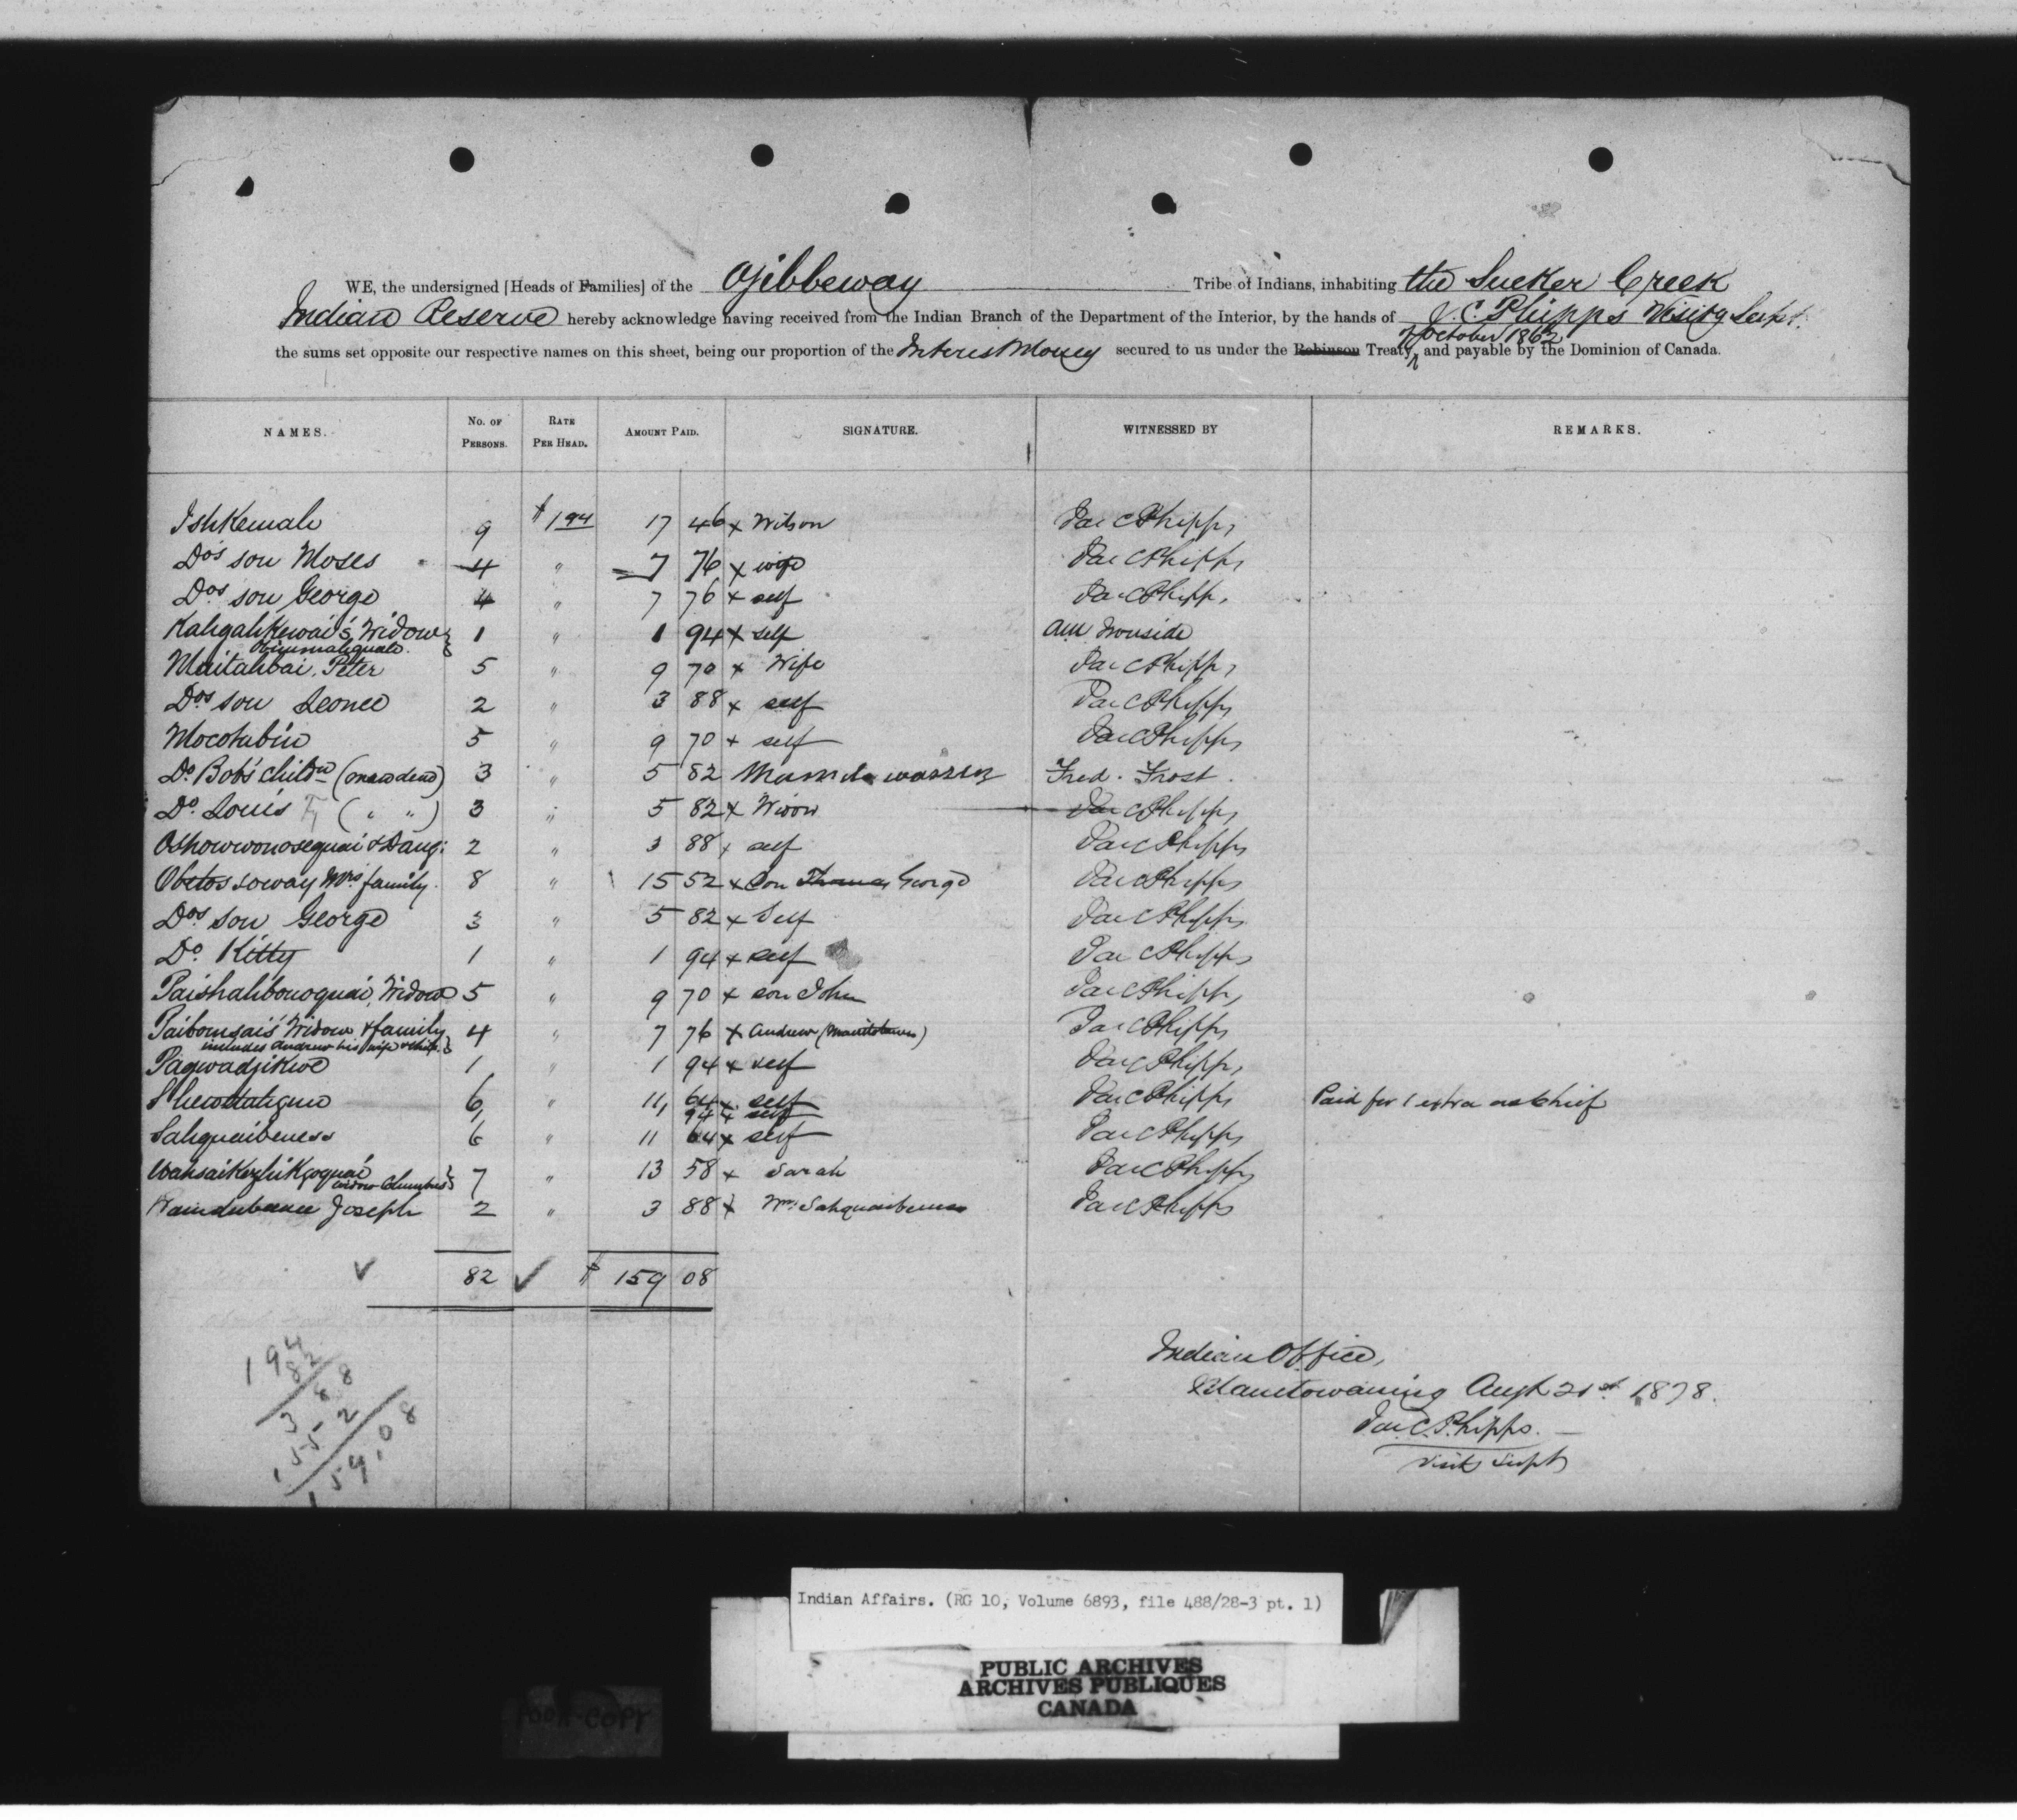 WE, the undersigned [Heads of Families] of the Ojibbeway Tribe of Indians, inhabiting the Sucker Creek
Indian Reserve hereby acknowledge having received from the Indian Branch of the Department of the Interior, by the hands of J. C. Phipps Visitg Supt.
of October 1862
the sums set opposite our respective names on this sheet, being our proportion of the Interest Money secured to us under the Robinson Treaty, and payable by the Dominion of Canada.
NAMES. No. of Persons. Rate Per Head. Amount Paid. SIGNATURE. WITNESSED BY REMARKS.
Ishkemah 9 $1 94 17 46 x Wilson Jas C Phipps
Dos son Moses 4 " 7 76 x wife Jas C Phipps
Dos son George 4 " 7 76 x self Jas C Phipps
Kahgahkewai's Widow 1 " 1 94 x self AM Ironside
Maitahbai, Peter 5 " 9 70 x Wife Jas C Phipps
Dos son Leonce 2 " 3 88 x self Jas C Phipps
Mocotabin 5 " 9 70 x self Jas C Phipps
Do Bob's childn (man dead) 3 " 5 82 Fred. Frost.
Do Louis (" ") 3 " 5 82 x Widow Jas C Phipps
Oshowwonosequai & Daug: 2 " 3 88 x self Jas C Phipps
Obetossoway Mrs family. 8 " 15 52 x Son Thomas George Jas C Phipps
Dos son George 3 " 5 82 x Self Jas C Phipps
Do Kitty 1 " 1 94 x self Jas C Phipps
Paishahbonoquai, Widow 5 " 9 70 x son John Jas C Phipps
Paibomsai's Widow & family 4 " 7 76 x Andrew Jas C Phipps
includes Andrew his wife & child
Pagwadjikwe 1 " 1 94 x self Jas C Phipps
6 " 11 64 x self Jas C Phipps Paid for 1 extra as Chief
1 1 94 x self
Sahquaibeness 6 " 11 64 x self Jas C Phipps
Wahsaikezhikgoquai 7 " 13 58 x Sarah Jas C Phipps
widow Columbus
Joseph 2 " 3 88 x Wm Sahquaibeness Jas C Phipps
82 $ 159 08
194
82
388
1552
159.08
Indian Office,
Manitowaning Augt 21st 1878.
Jas. C. Phipps.
Visitg Supt
Indian Affairs. (RG 10, Volume 6893, file 488/28-3 pt. 1)
PUBLIC ARCHIVES
ARCHIVES PUBLIQUES
CANADA
POOR COPY